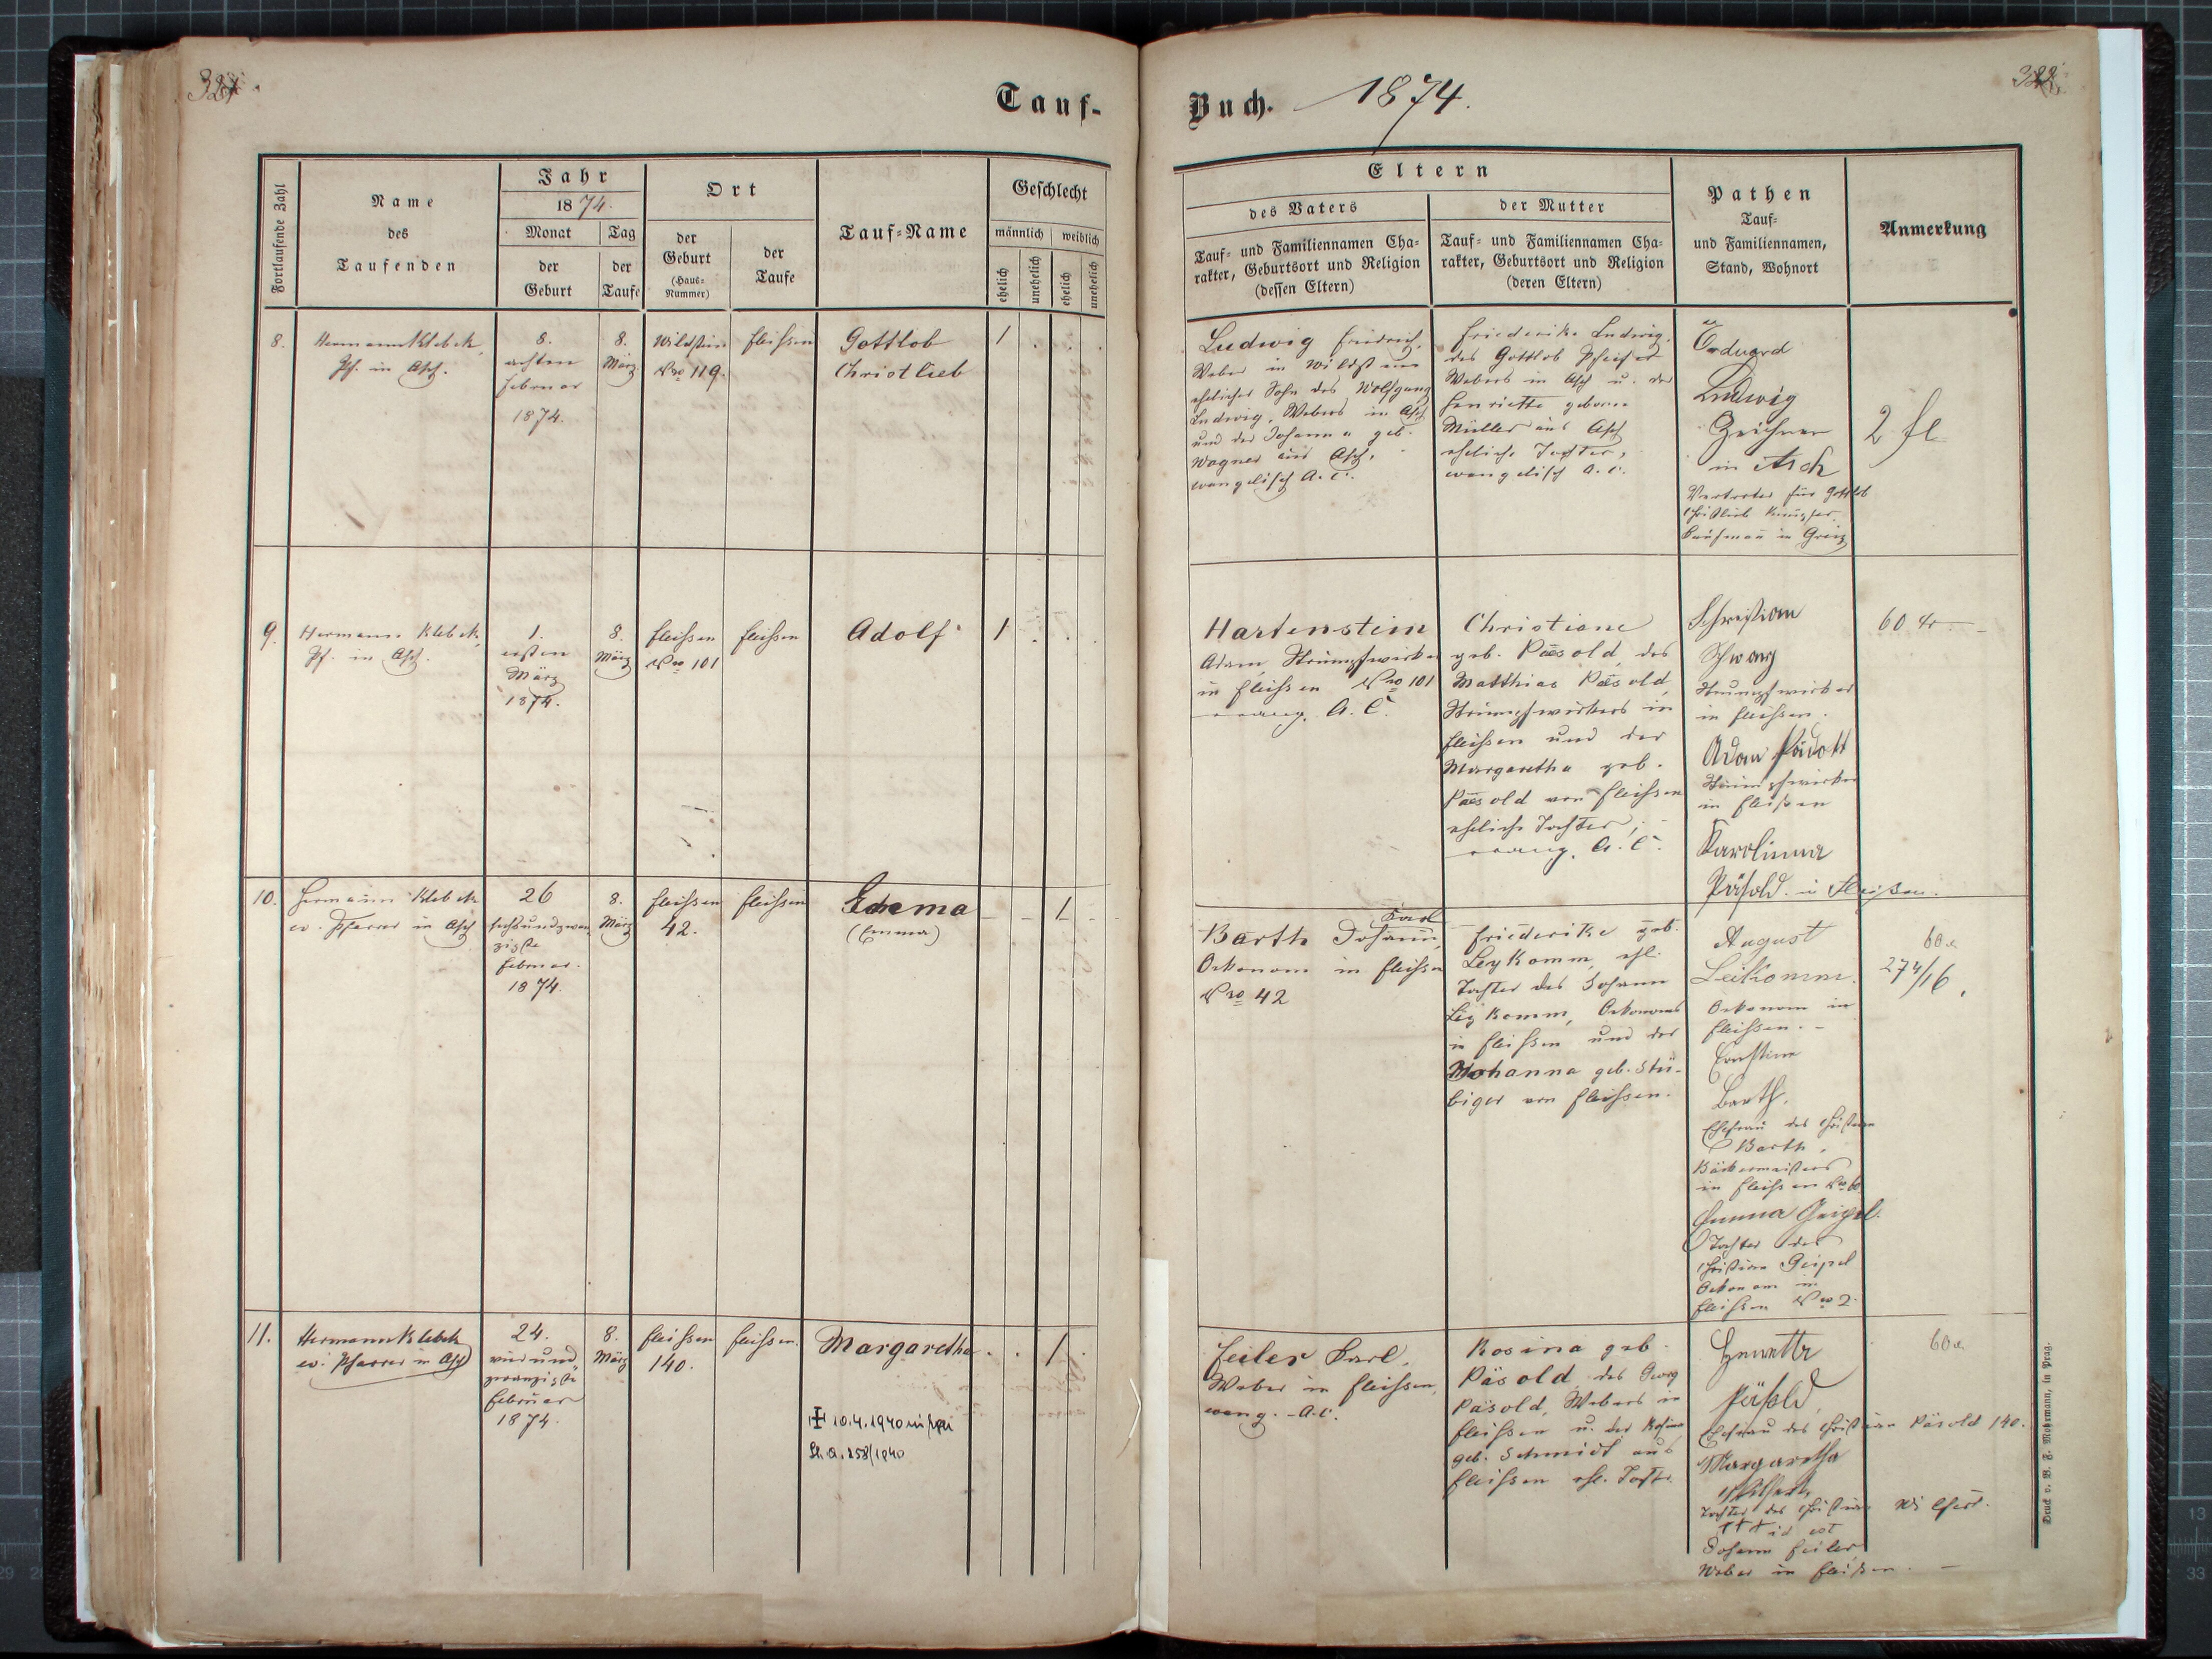 Tauf-
Buch. 1874.
Fortlaufende Zahl
Name
des
Taufenden
Jahr
1874.
Monat
der
Geburt
Tag
der
Taufe
Ort
der
Geburt
(Haus-
Nummer)
der
Taufe
Tauf-Name
Geschlecht
männlich
weiblich
ehelich
unehelich
ehelich
unehelich
Eltern
des Vaters
Tauf- und Familiennamen Cha-
rakter, Geburtsort und Religion
(dessen Eltern)
der Mutter
Tauf- und Familiennamen Cha-
rakter, Geburtsort und Religion
(deren Eltern)
Pathen
Tauf-
und Familiennamen,
Stand, Wohnort
Anmerkung
8.
Hermann Klebek,
Pf. in Asch.
8.
achten
Februar
1874.
8.
März
Wildstein
Nro 119.
Fleißen
Gottlob
Christlieb
1
Ludwig Friedrich,
Weber in Wildstein
ehelicher Sohn des Wolfgang
Ludwig, Webers in Asch
und der Johanna geb.
Wagner aus Asch,
evangelisch A. C.
Friederike Ludwig,
des Gottlob Pfeifer
Webers in Asch u. der
Henriette geborne
Müller aus Asch
eheliche Tochter,
evangelisch A. C.
Eduard
Ludwig
Zeichner
in Asch
Vertreter für Gottlob
Christlieb
Kaufmann in Greiz
2 fl
9.
Hermann Klebek,
Pf. in Asch.
1.
ersten
März
1874.
8.
März
Fleißen
Nro 101
Fleißen
Adolf
1
Hartenstein
Adam, Strumpfwirker
in Fleißen Nro 101
evang. A. C.
Christiane
geb. Paesold, des
Matthias Paesold,
Strumpfwirkers in
Fleißen und der
Margaretha geb.
Paesold von Fleißen
eheliche Tochter;
evang. A. C.
Christian
Schwarz
Strumpfwirker
in Fleißen.
Adam
Strumpfwirker
in Fleißen
Karolinna
Päsold in Fleißen.
60 xr
10.
Hermann Klebek
ev. Pfarrer in Asch
26
sechsundzwan
zigste
Februar.
1874.
8.
März
Fleißen
42.
Fleißen
Emma
(Emma)
1
Karl
Barth Johann,
Oekonom in Fleißen
Nro 42
Friederike geb.
Leykomm, ehl.
Tochter des Johann
Leykomm, Oekonoms
in Fleißen und der
Johanna geb. Stü-
biger von Fleißen.
August
Leikomm.
Oekonom in
Fleißen.
Ernstine
Barth.
Ehefrau des Christian
Barth,
Bäckermeisters
in Fleißen
Emma Geipel.
Tochter des
Christian Geipel
Oekonom in
Fleißen Nro 2.
60
274/16
11.
Hermann Klebek
ev. Pfarrer in Asch
24.
vierund
zwanzigste
Februar
1874.
8.
März
Fleißen
140.
Fleißen.
Margaretha
1
10.4.1940
258/1940
Feiler Karl,
Weber in Fleißen,
evang. A. C.
Rosina geb.
Päsold, des Georg
Päsold, Webers in
Fleißen u. der Rosina
geb. Schmidt aus
Fleißen ehl. Tocht.
Päsold,
Ehefrau des Christian Päsold 140.
Margaretha
Tochter des Christian
††† id est
Johann Feiler
Weber in Fleißen.
60
Druck v. B. F. Mohrmann, in Prag.